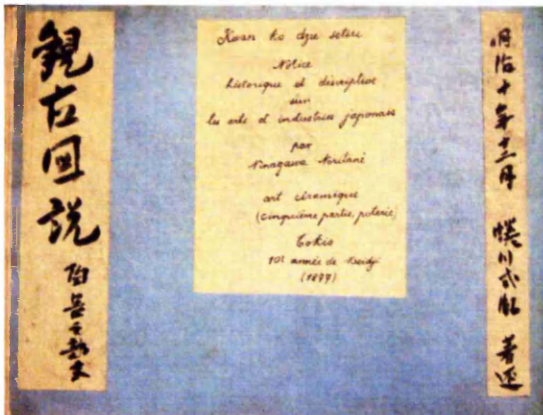 觀古図説
陶器之部
Kwan ko dzu setsu
Notice
historique et descriptive
sur
les arts et industries japonais
par
Ninagawa Noritané
art céramique
(cinquième partie, poterie)
Tokio
10e année de Meidji
(1877)
明治十年十二月 蜷川式胤 著述